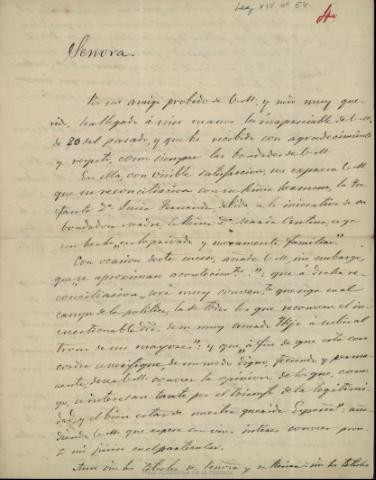 Leg XXI nº 54
Señora.
Por un amigo probado de V.M. y mio muy que-
rido, ha llegado á mis manos la inapreciable de V.M.
de 20 del pasado, y que he recibido con agradecimiento
y respeto, como siempre las bondades de V.M.
En ella, con visible satisfaccion, me expresa V.M.
que su reconciliacion con su hermana, la In-
fanta Dª Luisa Fernanda debida á la iniciativa de su
bondadosa Madre la Reina Dª Maria Cristina, es ya
un hecho, en lo privado y meramente familiar."
Con ocasion de este suceso, añade V.M., sin embargo,
que "se aproximan acontecimtos": que á dicha re-
conciliacion "será muy convente que siga en el
campo de la política, la de todos los que reconocen el in-
cuestionable dro. de mi muy amado Hijo á subir al
trono de sus mayores": y que "á fin de que esta con-
cordia se verifique, de un modo digno, fecundo y perma-
nente, desea V.M. conocer la opinion de los que, como
yo, se interesan tanto por el triunfo de la legitimi-
dad, y el bien estar de nuestra querida España": aña-
diendo V.M. que espera con vivo interés conocer pron-
to mi juicio en el particular.
Aun sin los títulos de Señora y de Reina: sin los títulos